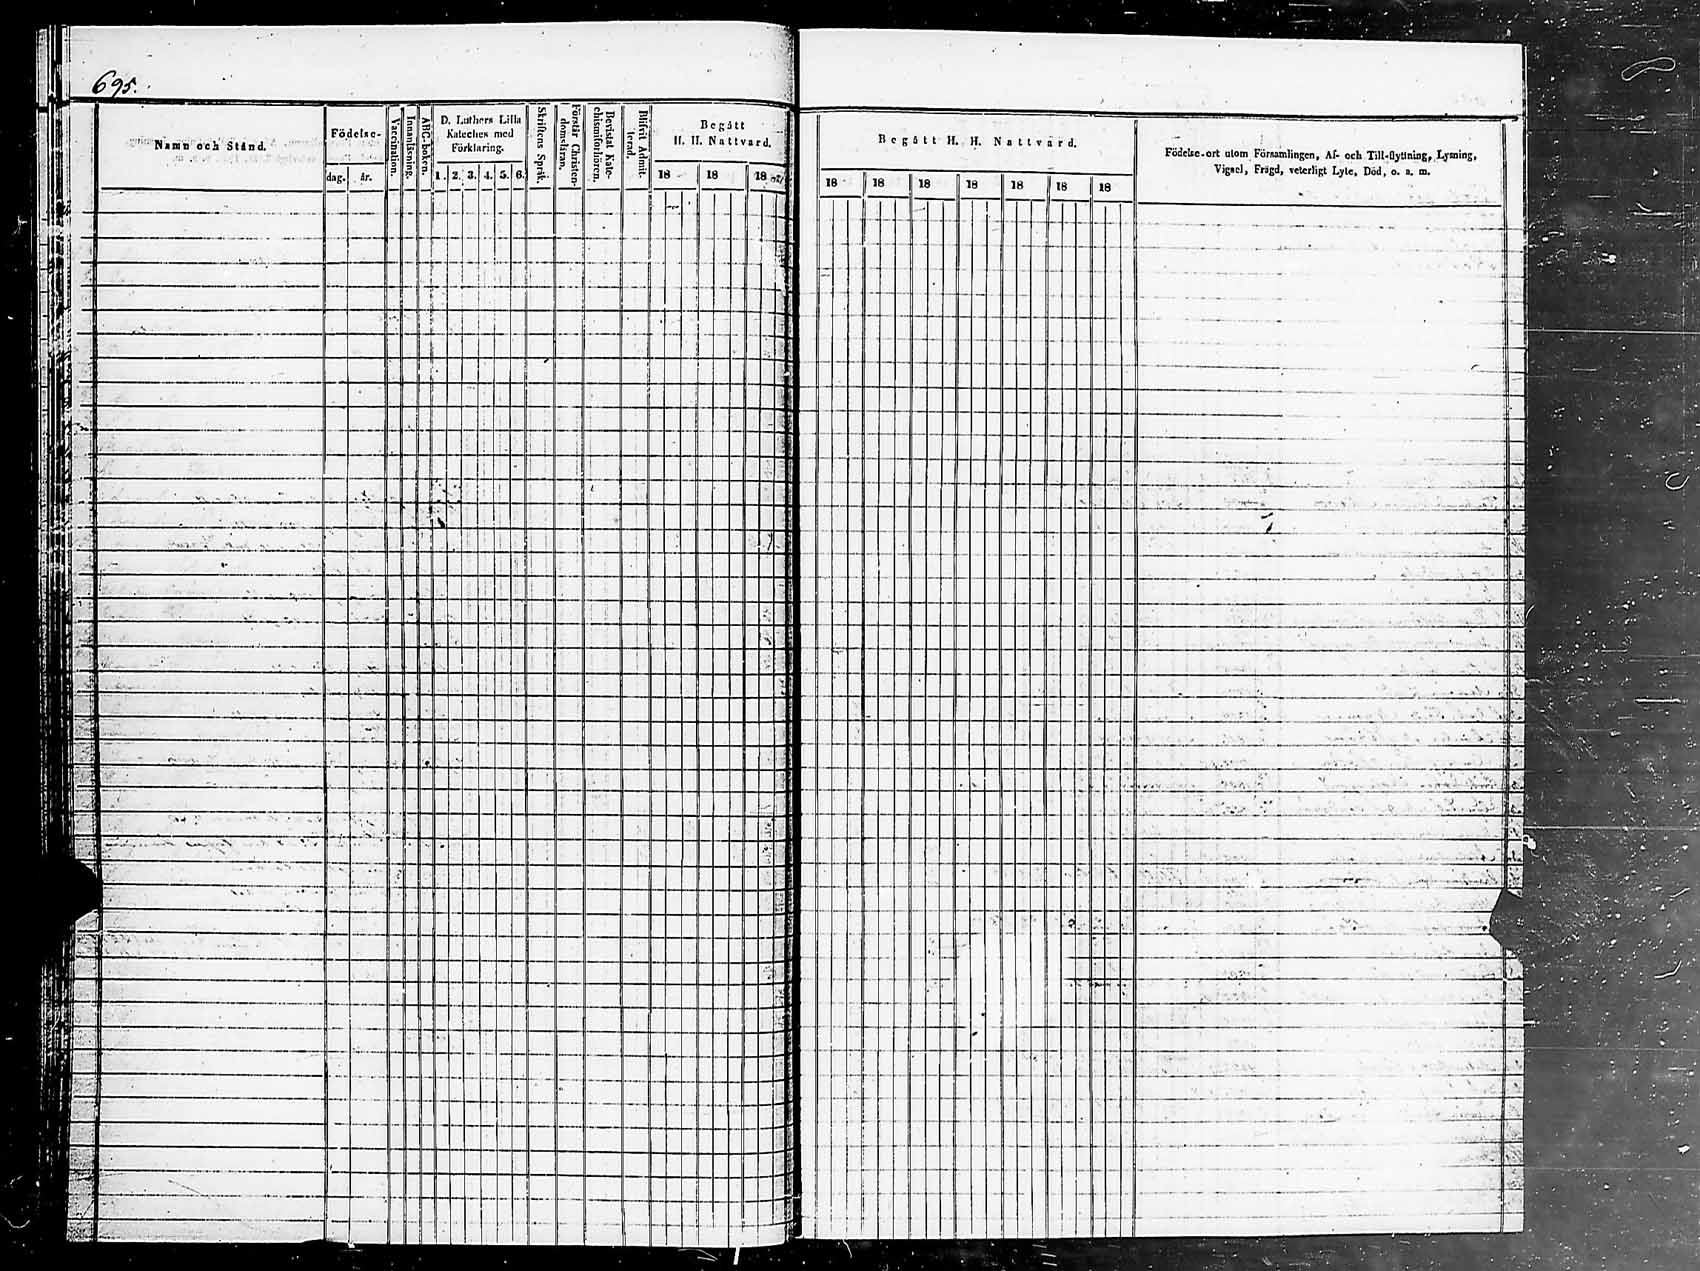 695.
Namn och Stånd.
Födelse-
dag. år.
Vaccination.
Innanläsning.
ABC-boken.
D. Luthers Lilla
Kateches med
Förklaring.
1. 2. 3. 4. 5. 6.
Skriftens Språk.
Förstår Christen-
domsläran.
Bevistat Kate-
chismiförhören.
Blifvit Admit-
terad.
Begått
H. H. Nattvard.
18 18 18
Begått H. H. Nattvard.
18 18 18 18 18 18 18
Födelse-ort utom Församlingen, Af- och Till-flyttning, Lysning,
Vigsel, Frägd, veterligt Lyte, Död, o. s. m.